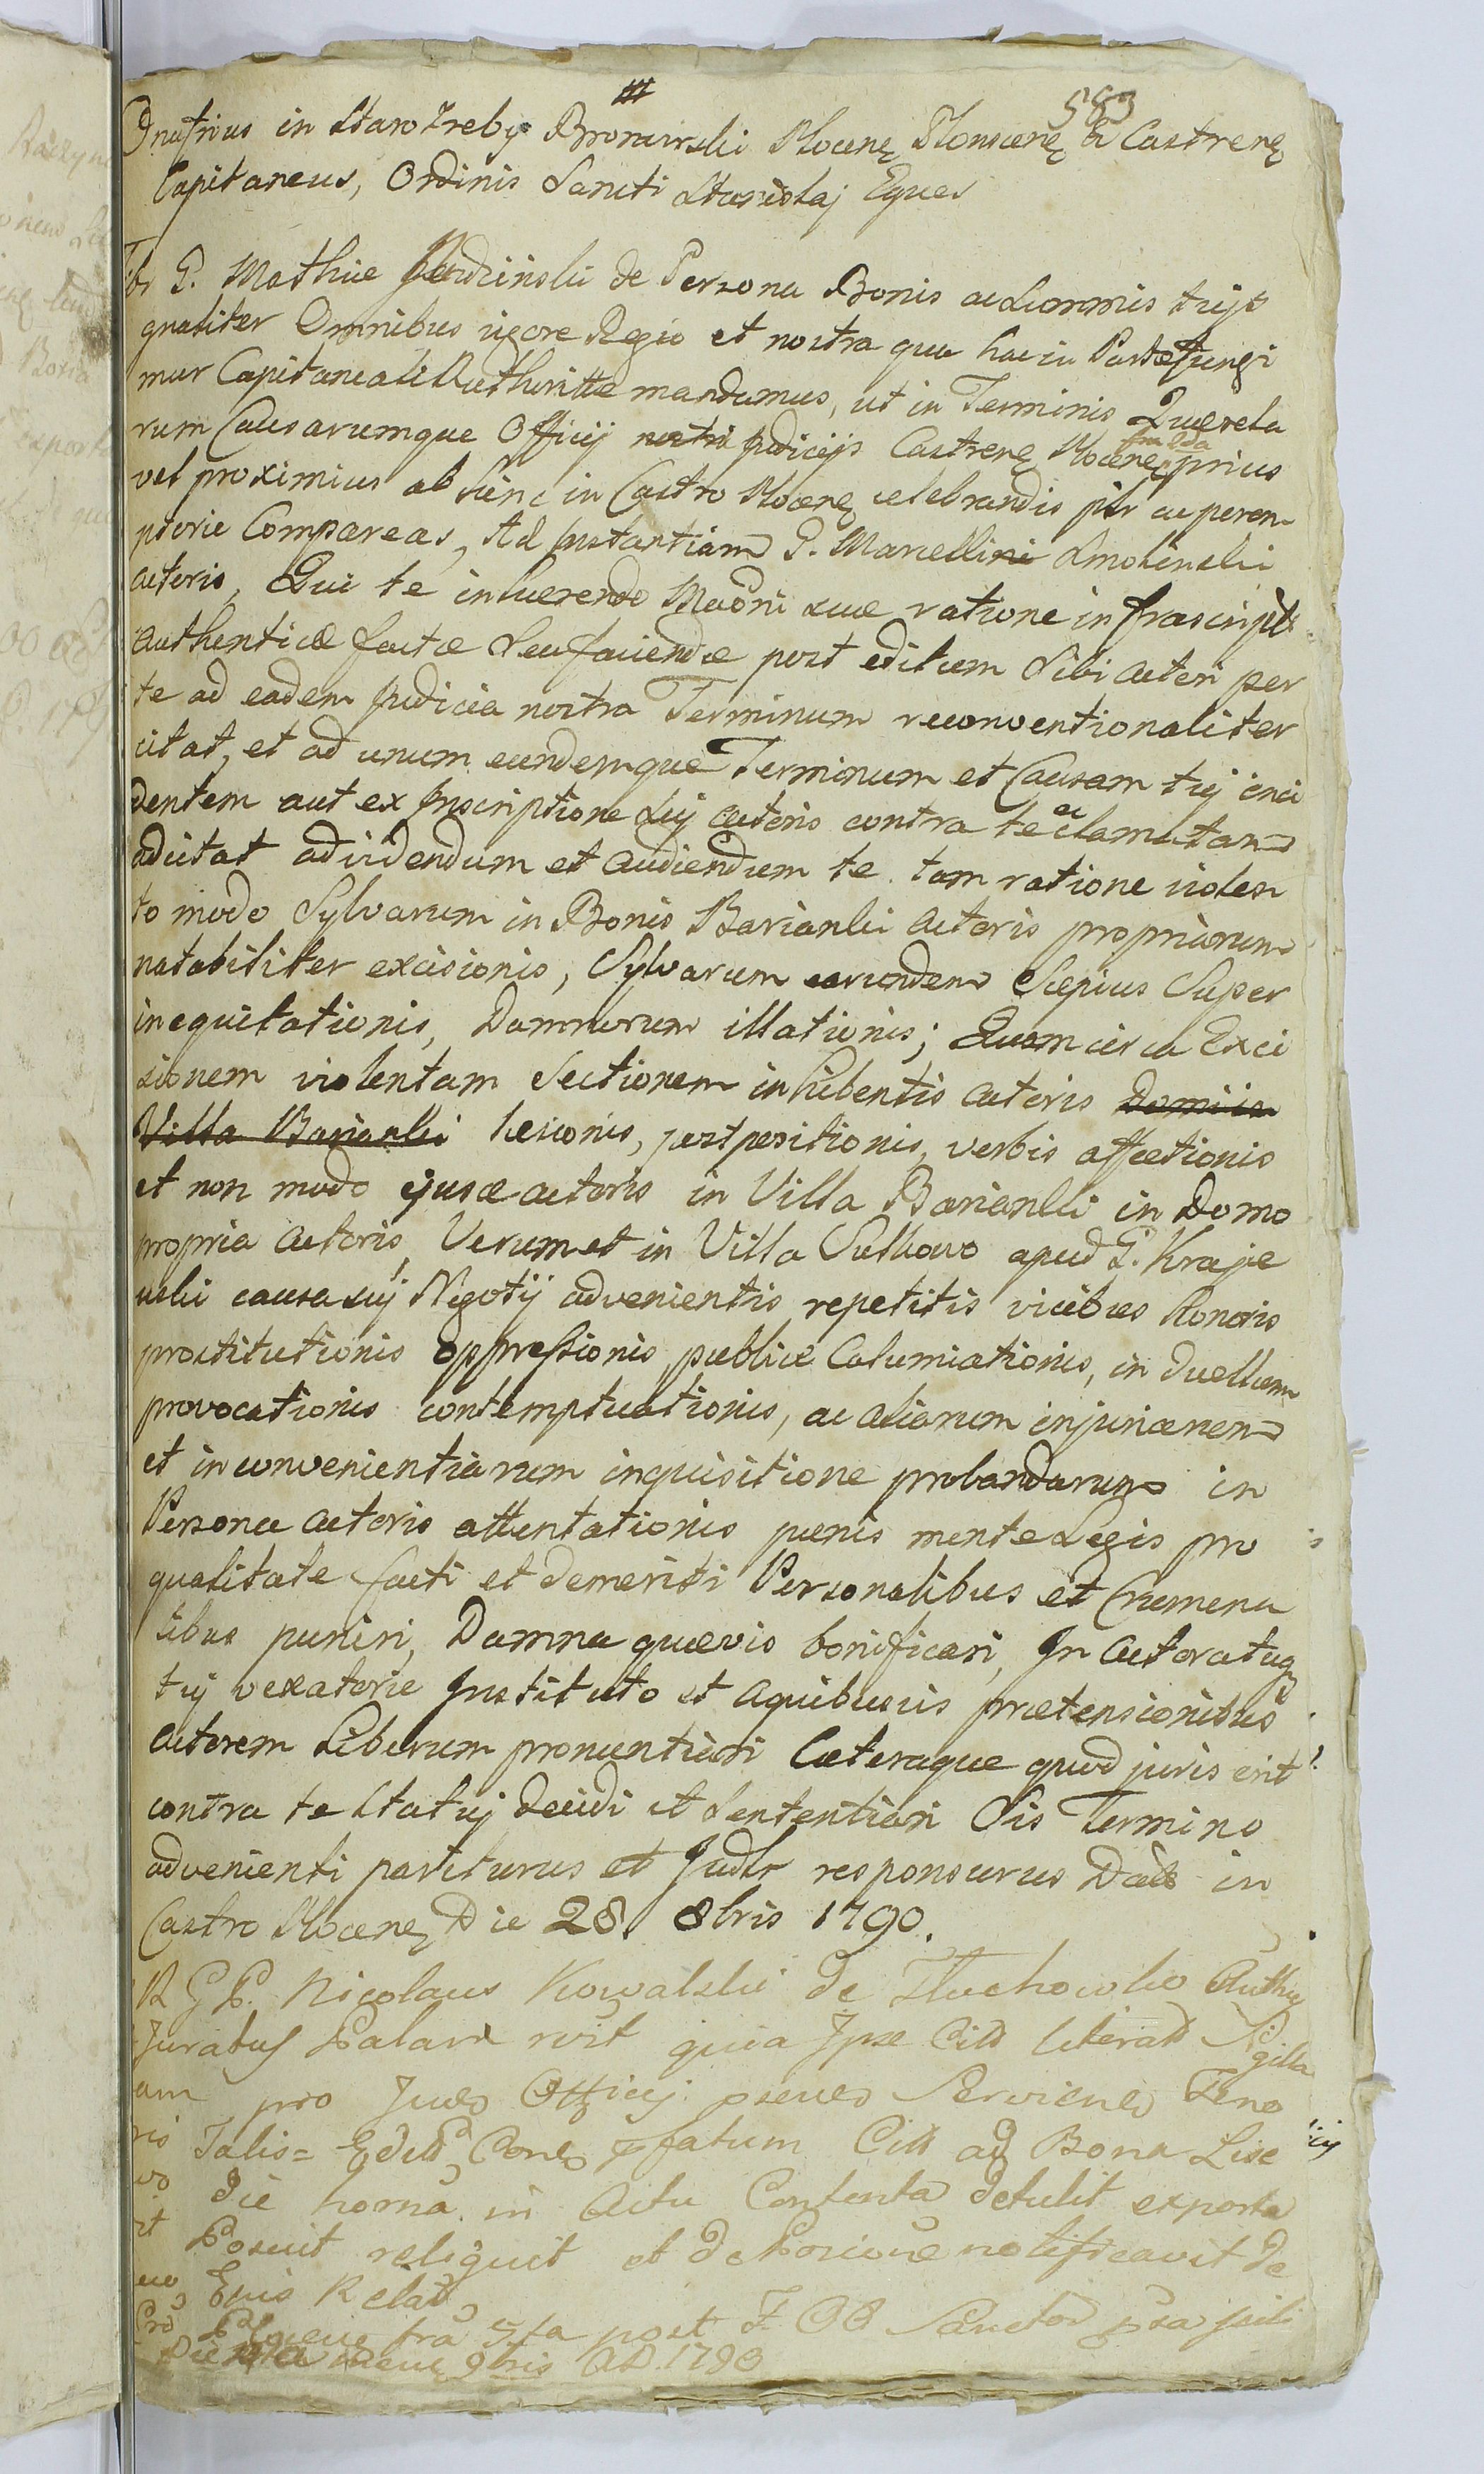 583
Onufrius in Staro Zreby Bromirski Plocen Plonscen a Castren
Capitaneus, Ordinis Sancti Stanislaj Eques
Tibi G. Mathiæ de Persona Bonis ac Summis tuijs
gnaliter Omnibus vigore Regio et nostra qua hac in Parte fungi
mur Capitaneali Authoritte mandamus, ut in Terminis Querela
rum Causarumque Officij nostri Judicijs Castren Plocen prius
vel proximius ab hinc in Castro Plocen celebrandis plr ac perem
ptorie Compareas, Ad Instantiam G. Marcellini Smolinski
actoris, Qui te inhærendo Madni suæ ratione infrascript
authenticæ factæ Seu faciendæ post editum Sibi actori per
te ad eadem Judicia nostra Terminum reconventionaliter
citat, et ad unum eundemque Terminum et Causam tuj inci
dentem aut ex Inscriptione Sui actoris contra te ac clamitam
adcitat ad videndum et audiendum te tam ratione violen
to modo Sylvarum in Bonis Barianki actoris propriarum
notabiliter excisionis, Sylvarum earundem Sæpius Super
inequitationis, Damnorum illationis; Quam circa Exci
sionem violentam Sectionem inhibentis actoris Domi in
Villa Barianki læsionis, postpositionis, verbis affectionis
et non modo ejusce actoris in Villa Barianki in Domo
propria actoris, Verum et in Villa Sulkowo apud G. Kraje
wski causa suj Negotij advenientis repetitis vicibus honoris
prostitutionis oppressionis publicæ Calumiationis, in duellum
provocationis contemptuationis, ac aliarum injuriarum
et inconvenientiarum inquisitione probandarum in
Persona actoris attentationis pœnis mente Legis pro
qualitate facti et demeriti Personalibus et Crumena
libus puniri, Damna quævis bonificari, In actoratu
tuj vexatorie Instituto et a quibusvis prætensionibus
actorem Liberum pronuntiari Cæteraque quod juris erit
contra te Statuj decidi et Sententiari Sis Termino
advenienti pariturus et Judlr responsurus Datt in
Castro Plocen Die 28 8bris 1790.
R G P. Nicolaus Kowalski de Tluchowko Authus
Juratus Palam rvit quia Ipse Citt literatt Sigilla
pro Officij Serviens Teno
Talis= Edittd Cone pfatum Citt ad Bona Lise
die horna in Actu Contenta detulit exporta
Posuit reliquit et de Posicione notificavit de
Ejus Relatt
fra 5ta post F. OO Sanctor
9bris AD. 1790